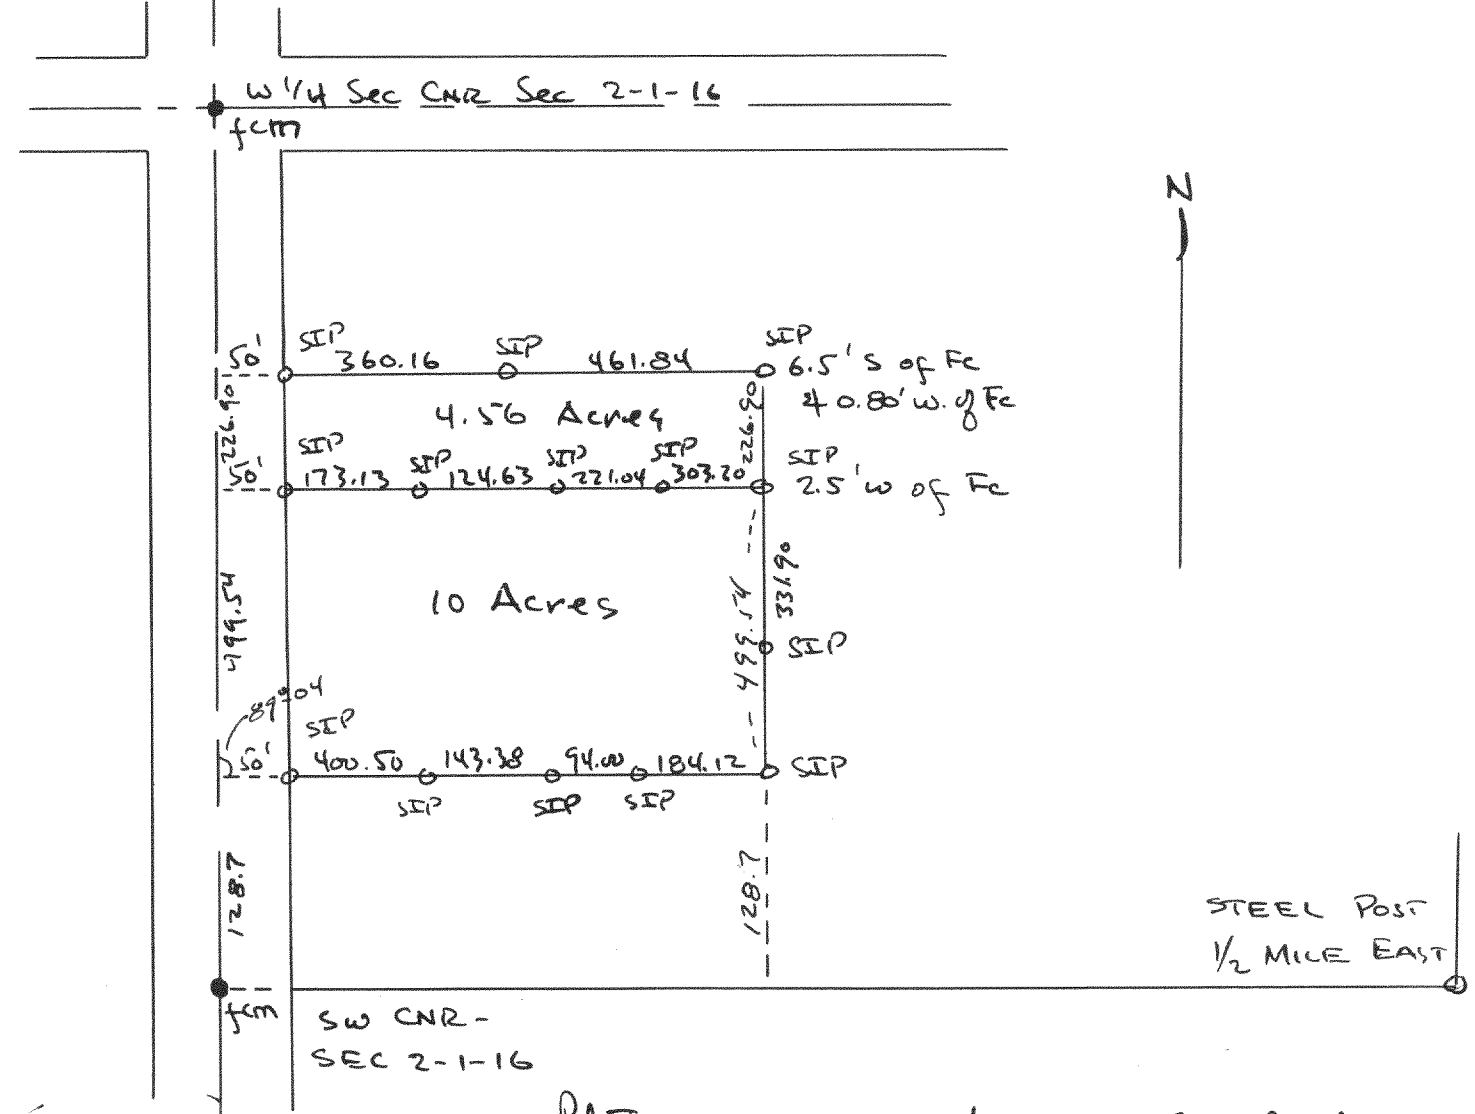 W 1/4 Sec CNR Sec 2-1-16
fcm
N
50'
SIP
360.16
SIP
461.84
SIP
6.5' S of Fc
& 0.80' W. of Fc
226.90
4.56 Acres
226.90
50'
SIP
173.13
SIP
124.63
SIP
221.04
SIP
303.20
SIP
2.5' W of Fc
499.54
10 Acres
499.54
331.90
SIP
89°-04
SIP
50'
400.50
143.38
94.00
184.12
SIP
SIP
SIP
SIP
128.7
128.7
STEEL POST
1/2 MILE EAST
fcm
SW CNR-
SEC 2-1-16